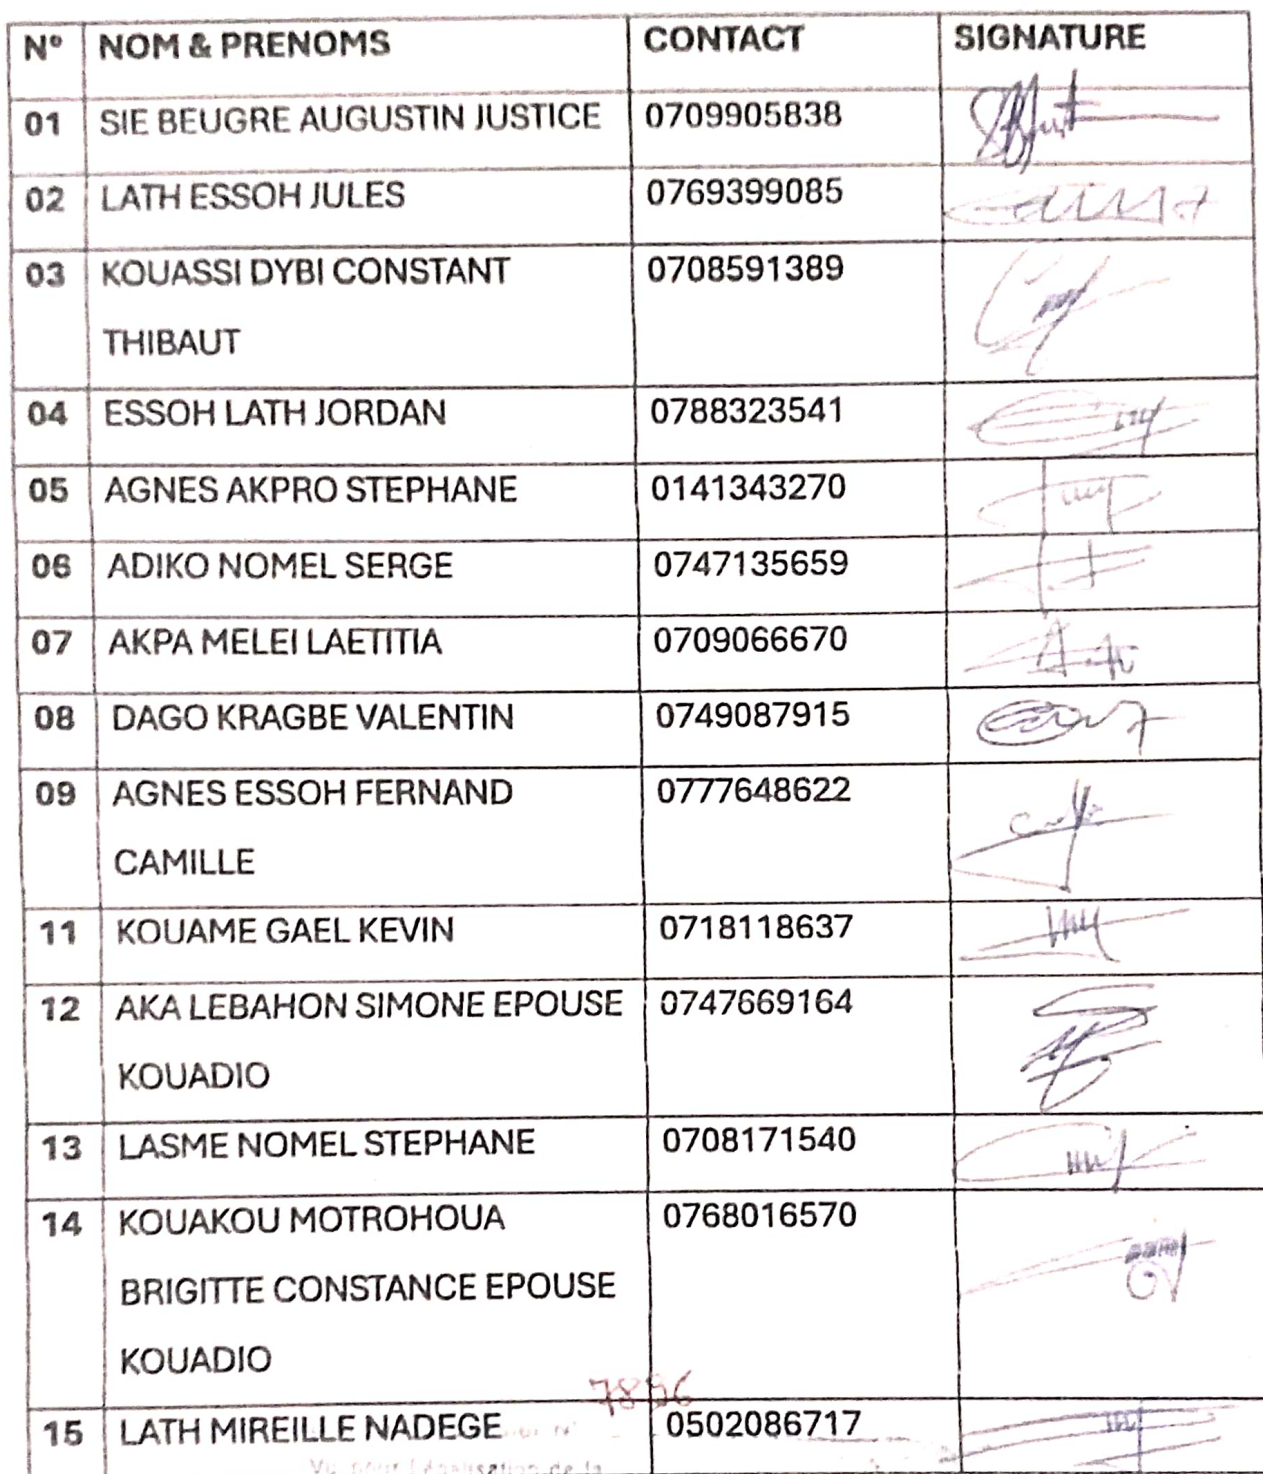 N° NOM & PRENOMS CONTACT SIGNATURE
01 SIE BEUGRE AUGUSTIN JUSTICE 0709905838
02 LATH ESSOH JULES 0769399085
03 KOUASSI DYBI CONSTANT 0708591389
THIBAUT
04 ESSOH LATH JORDAN 0788323541
05 AGNES AKPRO STEPHANE 0141343270
06 ADIKO NOMEL SERGE 0747135659
07 AKPA MELEI LAETITIA 0709066670
08 DAGO KRAGBE VALENTIN 0749087915
09 AGNES ESSOH FERNAND 0777648622
CAMILLE
11 KOUAME GAEL KEVIN 0718118637
12 AKA LEBAHON SIMONE EPOUSE 0747669164
KOUADIO
13 LASME NOMEL STEPHANE 0708171540
14 KOUAKOU MOTROHOUA 0768016570
BRIGITTE CONSTANCE EPOUSE
KOUADIO
15 LATH MIREILLE NADEGE 0502086717
Vu pour Légalisation de la